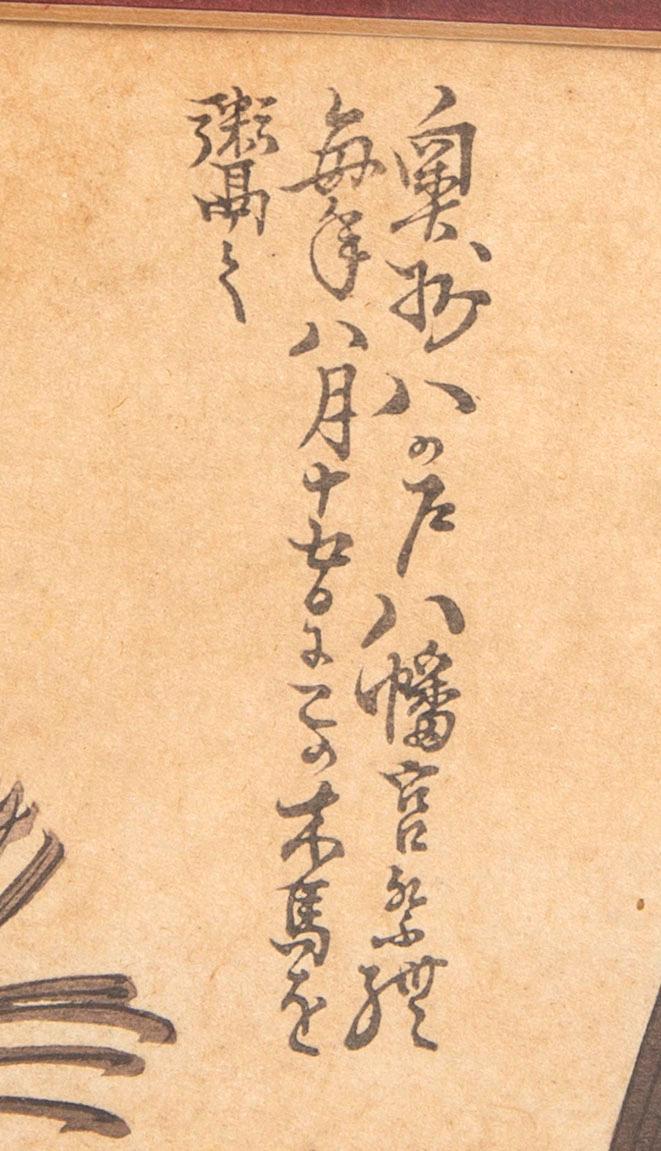 奥州八の戸八幡宮祭禮
毎年八月十五日にこの木馬を
鬻く